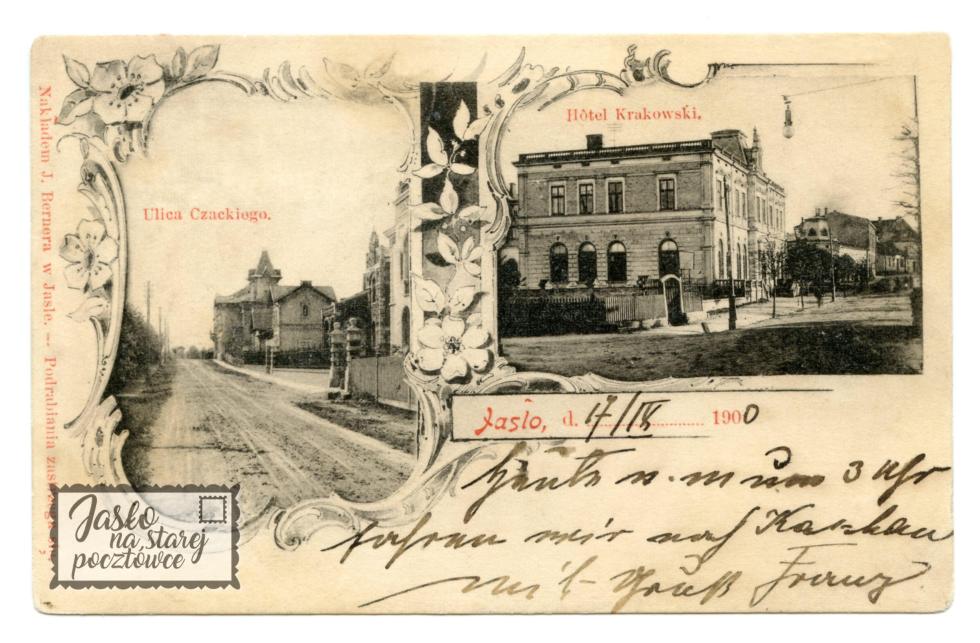 Nakładem J. Bernera w Jaśle. — Podrabiania
Ulica Czackiego.
Hôtel Krakowski.
Jasło, d. 17/IX 1900
Heute n. m um 3 Uhr
fahren wir nach Kaschau
mit Gruß Franz
Jasło
na starej
pocztówce